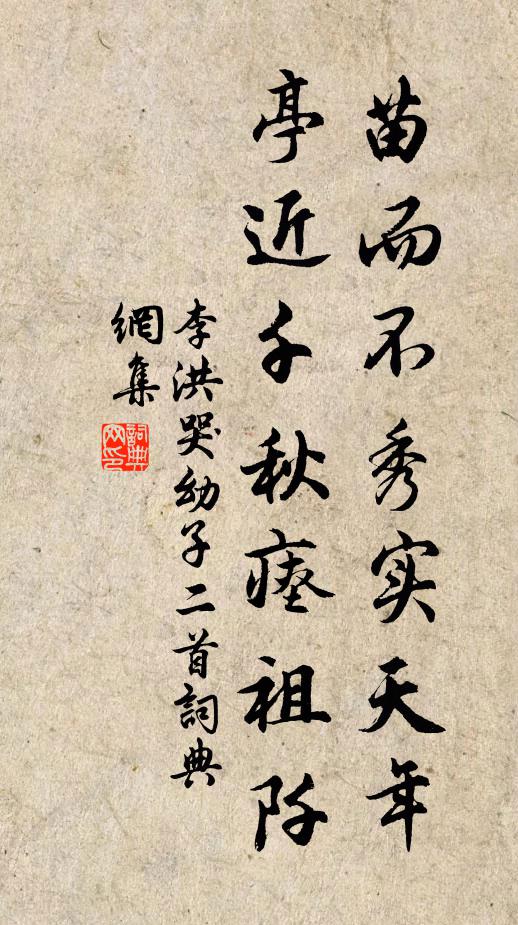 苗而不秀实天年
亭近千秋瘗祖阡
李洪哭幼子二首詞典
網集
詞典
网印